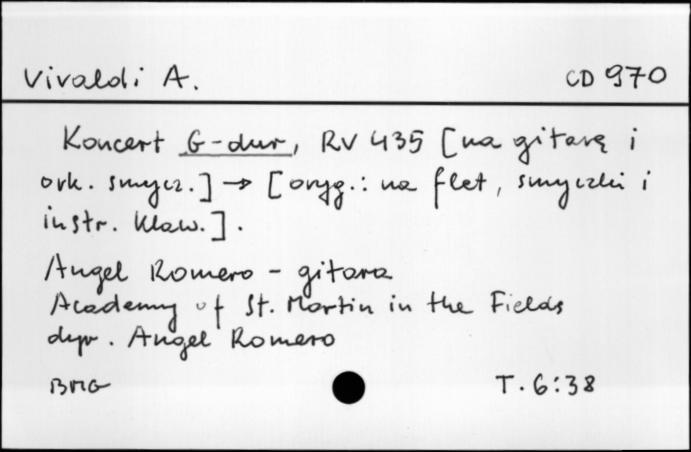 Vivaldi A. CD 970
Koncert G-dur, RV 435 [na gitarę i
ork. smycz.] → [oryg.: na flet, smyczki i
instr. klaw.].
Angel Romero - gitara
Academy of St. Martin in the Fields
dyr. Angel Romero
BMG T. 6:38